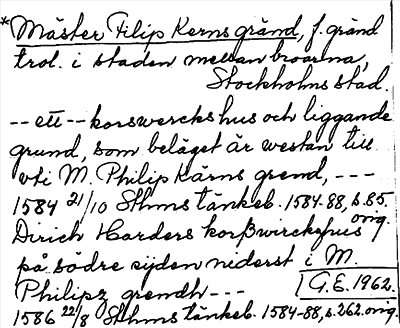 *Mäster Filip Kerns gränd, f. gränd
trol. i staden mellan broarna,
Stockholms stad.
-- ett -- korswerckshus och liggande
grund, som beläget är westan till
vti M. Philip Kärns grend, ---
1584 21/10 Sthms tänkeb. 1584-88, s. 85.
orig.
Dirich Harders korßwirckehus
på södre sijden niderst i M.
Philipz grendh ---
G.E. 1962.
1586 22/8 Sthms tänkeb. 1584-88, s. 262. orig.